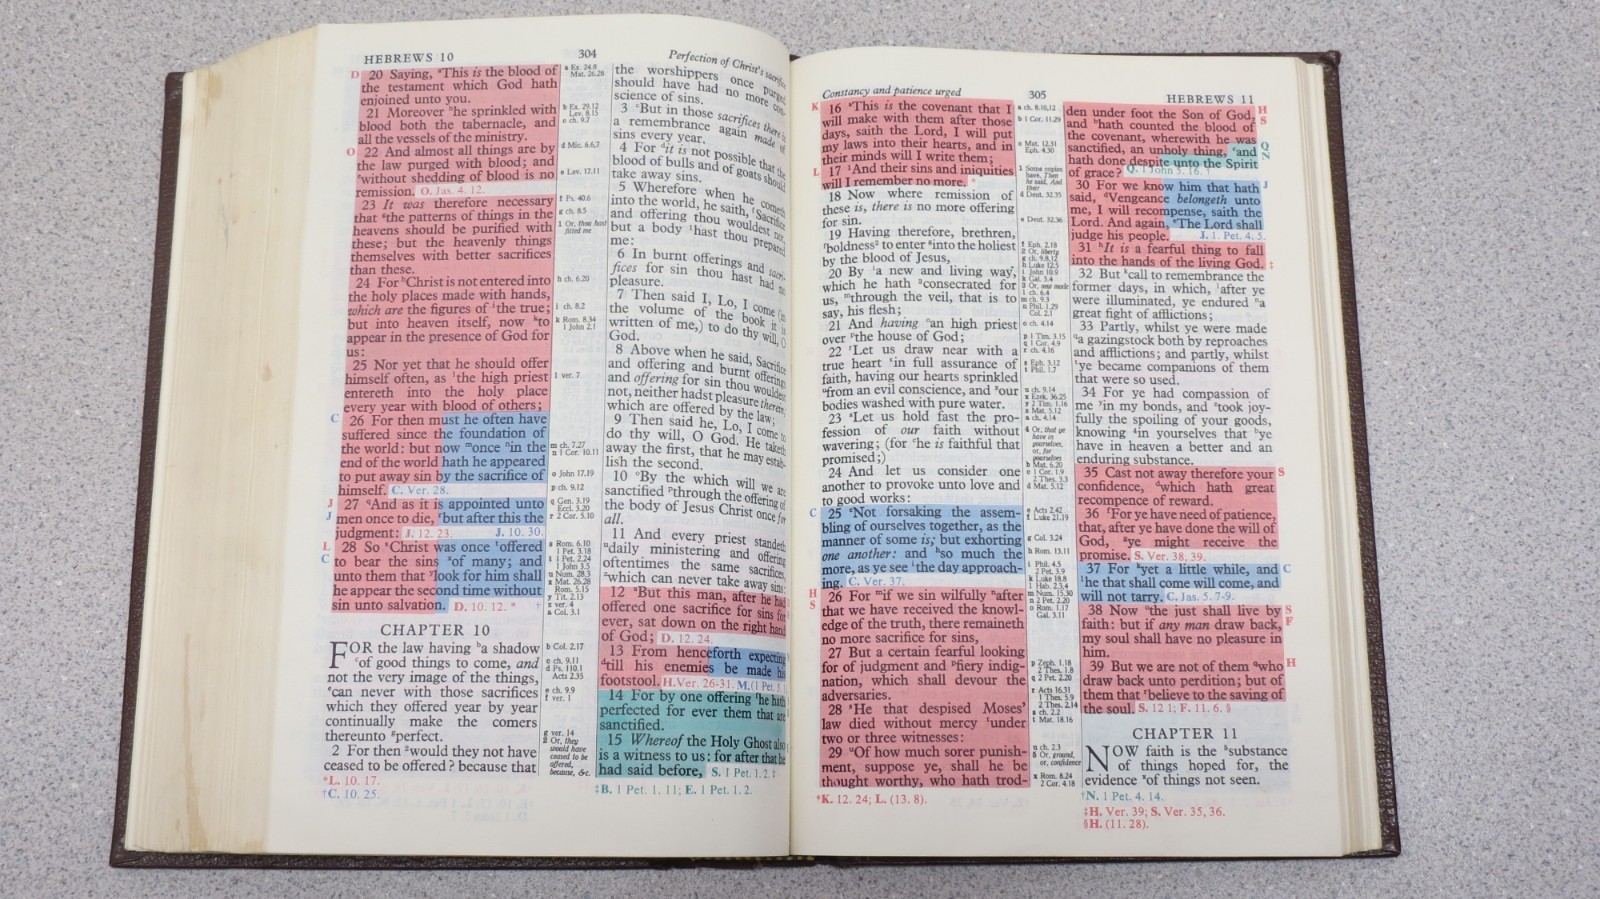 HEBREWS 10
304
Perfection of Christ's
D 20 Saying, This is the blood of
the testament which God hath
enjoined unto you.
21 Moreover he sprinkled with
blood both the tabernacle, and
all the vessels of the ministry.
O 22 And almost all things are by
the law purged with blood; and
without shedding of blood is no
remission. O. Jas. 4. 12.
23 It was therefore necessary
that the patterns of things in the
heavens should be purified with
these; but the heavenly things
themselves with better sacrifices
than these.
24 For Christ is not entered into
the holy places made with hands,
which are the figures of the true;
but into heaven itself, now to
appear in the presence of God for
us:
25 Nor yet that he should offer
himself often, as the high priest
entereth into the holy place
every year with blood of others;
C 26 For then must he often have
suffered since the foundation of
the world: but now once in the
end of the world hath he appeared
to put away sin by the sacrifice of
himself. C. Ver. 28.
J 27 And as it is appointed unto
J men once to die, but after this the
judgment: J. 12. 23. J. 10. 30.
L 28 So Christ was once offered
C to bear the sins of many; and
unto them that look for him shall
he appear the second time without
sin unto salvation. D. 10. 12. * †
CHAPTER 10
FOR the law having a shadow
of good things to come, and
not the very image of the things,
can never with those sacrifices
which they offered year by year
continually make the comers
thereunto perfect.
2 For then would they not have
ceased to be offered? because that
*L. 10. 17.
†C. 10. 25.
a Ex. 24.8
Mat. 26.28
b Ex. 29.12
Lev. 8.15
c ch. 9.7
d Mic. 6.6,7
e Lev. 17.11
f Ps. 40.6
g ch. 8.5
1 Or, thou hast
fitted me
h ch. 6.20
i ch. 8.2
k Rom. 8.34
1 John 2.1
l ver. 7
m ch. 7.27
n 1 Cor. 10.11
o John 17.19
p ch. 9.12
q Gen. 3.19
Eccl. 3.20
r 2 Cor. 5.10
s Rom. 6.10
1 Pet. 3.18
t 1 Pet. 2.24
1 John 3.5
u Num. 28.3
x Mat. 26.28
Rom. 5.15
y Tit. 2.13
z ver. 4
a Col. 3.1
b Col. 2.17
c ch. 9.11
d Ps. 110.1
Acts 2.35
e ch. 9.9
f ver. 1
g ver. 14
2 Or, they
would have
ceased to be
offered,
because, &c.
the worshippers once purged
should have had no more con-
science of sins.
3 But in those sacrifices there is
a remembrance again made of
sins every year.
4 For it is not possible that the
blood of bulls and of goats should
take away sins.
5 Wherefore when he cometh
into the world, he saith, Sacrifice
and offering thou wouldest not,
but a body hast thou prepared
me:
6 In burnt offerings and sacri-
fices for sin thou hast had no
pleasure.
7 Then said I, Lo, I come (in
the volume of the book it is
written of me,) to do thy will, O
God.
8 Above when he said, Sacrifice
and offering and burnt offerings
and offering for sin thou wouldest
not, neither hadst pleasure therein;
which are offered by the law;
9 Then said he, Lo, I come to
do thy will, O God. He taketh
away the first, that he may estab-
lish the second.
10 By the which will we are
sanctified through the offering of
the body of Jesus Christ once for
all.
11 And every priest standeth
daily ministering and offering
oftentimes the same sacrifices,
which can never take away sins:
12 But this man, after he had
offered one sacrifice for sins for
ever, sat down on the right hand
of God; D. 12. 24.
13 From henceforth expecting
till his enemies be made his
footstool. H. Ver. 26-31. M. (1 Pet.
14 For by one offering he hath
perfected for ever them that are
sanctified.
15 Whereof the Holy Ghost also
is a witness to us: for after that he
had said before, S. 1 Pet. 1. 2. ‡
‡B. 1 Pet. 1. 11; E. 1 Pet. 1. 2.
Constancy and patience urged
305
HEBREWS 11
K 16 This is the covenant that I
will make with them after those
days, saith the Lord, I will put
my laws into their hearts, and in
their minds will I write them;
L 17 And their sins and iniquities
will I remember no more. *
18 Now where remission of
these is, there is no more offering
for sin.
19 Having therefore, brethren,
boldness to enter into the holiest
by the blood of Jesus,
20 By a new and living way,
which he hath consecrated for
us, through the veil, that is to
say, his flesh;
21 And having an high priest
over the house of God;
22 Let us draw near with a
true heart in full assurance of
faith, having our hearts sprinkled
from an evil conscience, and our
bodies washed with pure water.
23 Let us hold fast the pro-
fession of our faith without
wavering; (for he is faithful that
promised;)
24 And let us consider one
another to provoke unto love and
to good works:
C 25 Not forsaking the assem-
bling of ourselves together, as the
manner of some is; but exhorting
one another: and so much the
more, as ye see the day approach-
ing. C. Ver. 37.
H 26 For if we sin wilfully after
S that we have received the knowl-
edge of the truth, there remaineth
no more sacrifice for sins,
27 But a certain fearful looking
for of judgment and fiery indig-
nation, which shall devour the
adversaries.
28 He that despised Moses'
law died without mercy under
two or three witnesses:
29 Of how much sorer punish-
ment, suppose ye, shall he be
thought worthy, who hath trod-
*K. 12. 24; L. (13. 8).
a ch. 8.10,12
b 1 Cor. 11.29
c Mat. 12.31
Eph. 4.30
1 Some copies
have, Then
he said, And
their
d Deut. 32.35
e Deut. 32.36
f Eph. 2.18
2 Or, liberty
g ch. 9.8,12
h Luke 12.5
i John 10.9
k Gal. 3.4
3 Or, new made
l ch. 6.4
m ch. 9.3
n Phil. 1.29
Col. 2.1
o ch. 4.14
p 1 Tim. 3.15
q 1 Cor. 4.9
r ch. 4.16
s Eph. 3.12
t Phil. 1.7
u ch. 9.14
x Ezek. 36.25
y 2 Tim. 1.16
z Mat. 5.12
a ch. 4.14
4 Or, that ye
have in
yourselves,
or, for
yourselves
b Mat. 6.20
c 1 Cor. 1.9
2 Thes. 3.3
d Mat. 5.12
e Acts 2.42
f Luke 21.19
g Col. 3.24
h Rom. 13.11
i Phil. 4.5
2 Pet. 3.9
k Luke 18.8
l Hab. 2.3,4
m Num. 15.30
n 2 Pet. 2.20
o Rom. 1.17
Gal. 3.11
p Zeph. 1.18
2 Thes. 1.8
q 2 Pet. 2.20
r Acts 16.31
1 Thes. 5.9
2 Thes. 2.14
s ch. 2.2
t Mat. 18.16
u ch. 2.3
5 Or, ground,
or, confidence
x Rom. 8.24
2 Cor. 4.18
den under foot the Son of God, H
and hath counted the blood of S
the covenant, wherewith he was
sanctified, an unholy thing, and Q
hath done despite unto the Spirit N
of grace? Q. 1 John 5. 16. †
30 For we know him that hath J
said, Vengeance belongeth unto
me, I will recompense, saith the
Lord. And again, The Lord shall
judge his people. J. 1. Pet. 4. 5.
31 It is a fearful thing to fall
into the hands of the living God. ‡
32 But call to remembrance the
former days, in which, after ye
were illuminated, ye endured a
great fight of afflictions;
33 Partly, whilst ye were made
a gazingstock both by reproaches
and afflictions; and partly, whilst
ye became companions of them
that were so used.
34 For ye had compassion of
me in my bonds, and took joy-
fully the spoiling of your goods,
knowing in yourselves that ye
have in heaven a better and an
enduring substance.
35 Cast not away therefore your S
confidence, which hath great
recompence of reward.
36 For ye have need of patience,
that, after ye have done the will of
God, ye might receive the
promise. S. Ver. 38, 39.
37 For yet a little while, and C
he that shall come will come, and
will not tarry. C. Jas. 5. 7-9.
38 Now the just shall live by S
faith: but if any man draw back, F
my soul shall have no pleasure in
him.
39 But we are not of them who H
draw back unto perdition; but of
them that believe to the saving of
the soul. S. 12 1; F. 11. 6. §
CHAPTER 11
NOW faith is the substance
of things hoped for, the
evidence of things not seen.
†N. 1 Pet. 4. 14.
‡H. Ver. 39; S. Ver. 35, 36.
§H. (11. 28).